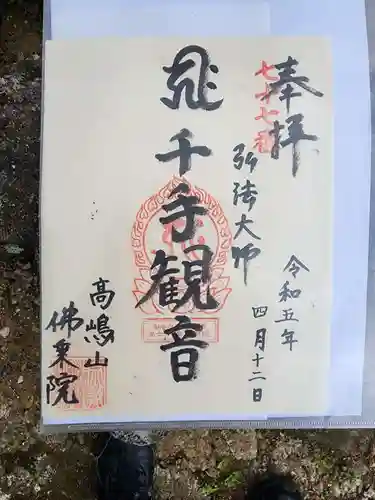 奉拝
七十七番
令和五年
四月十二日
弘法大师
千手観音
高嶋山
佛乗院